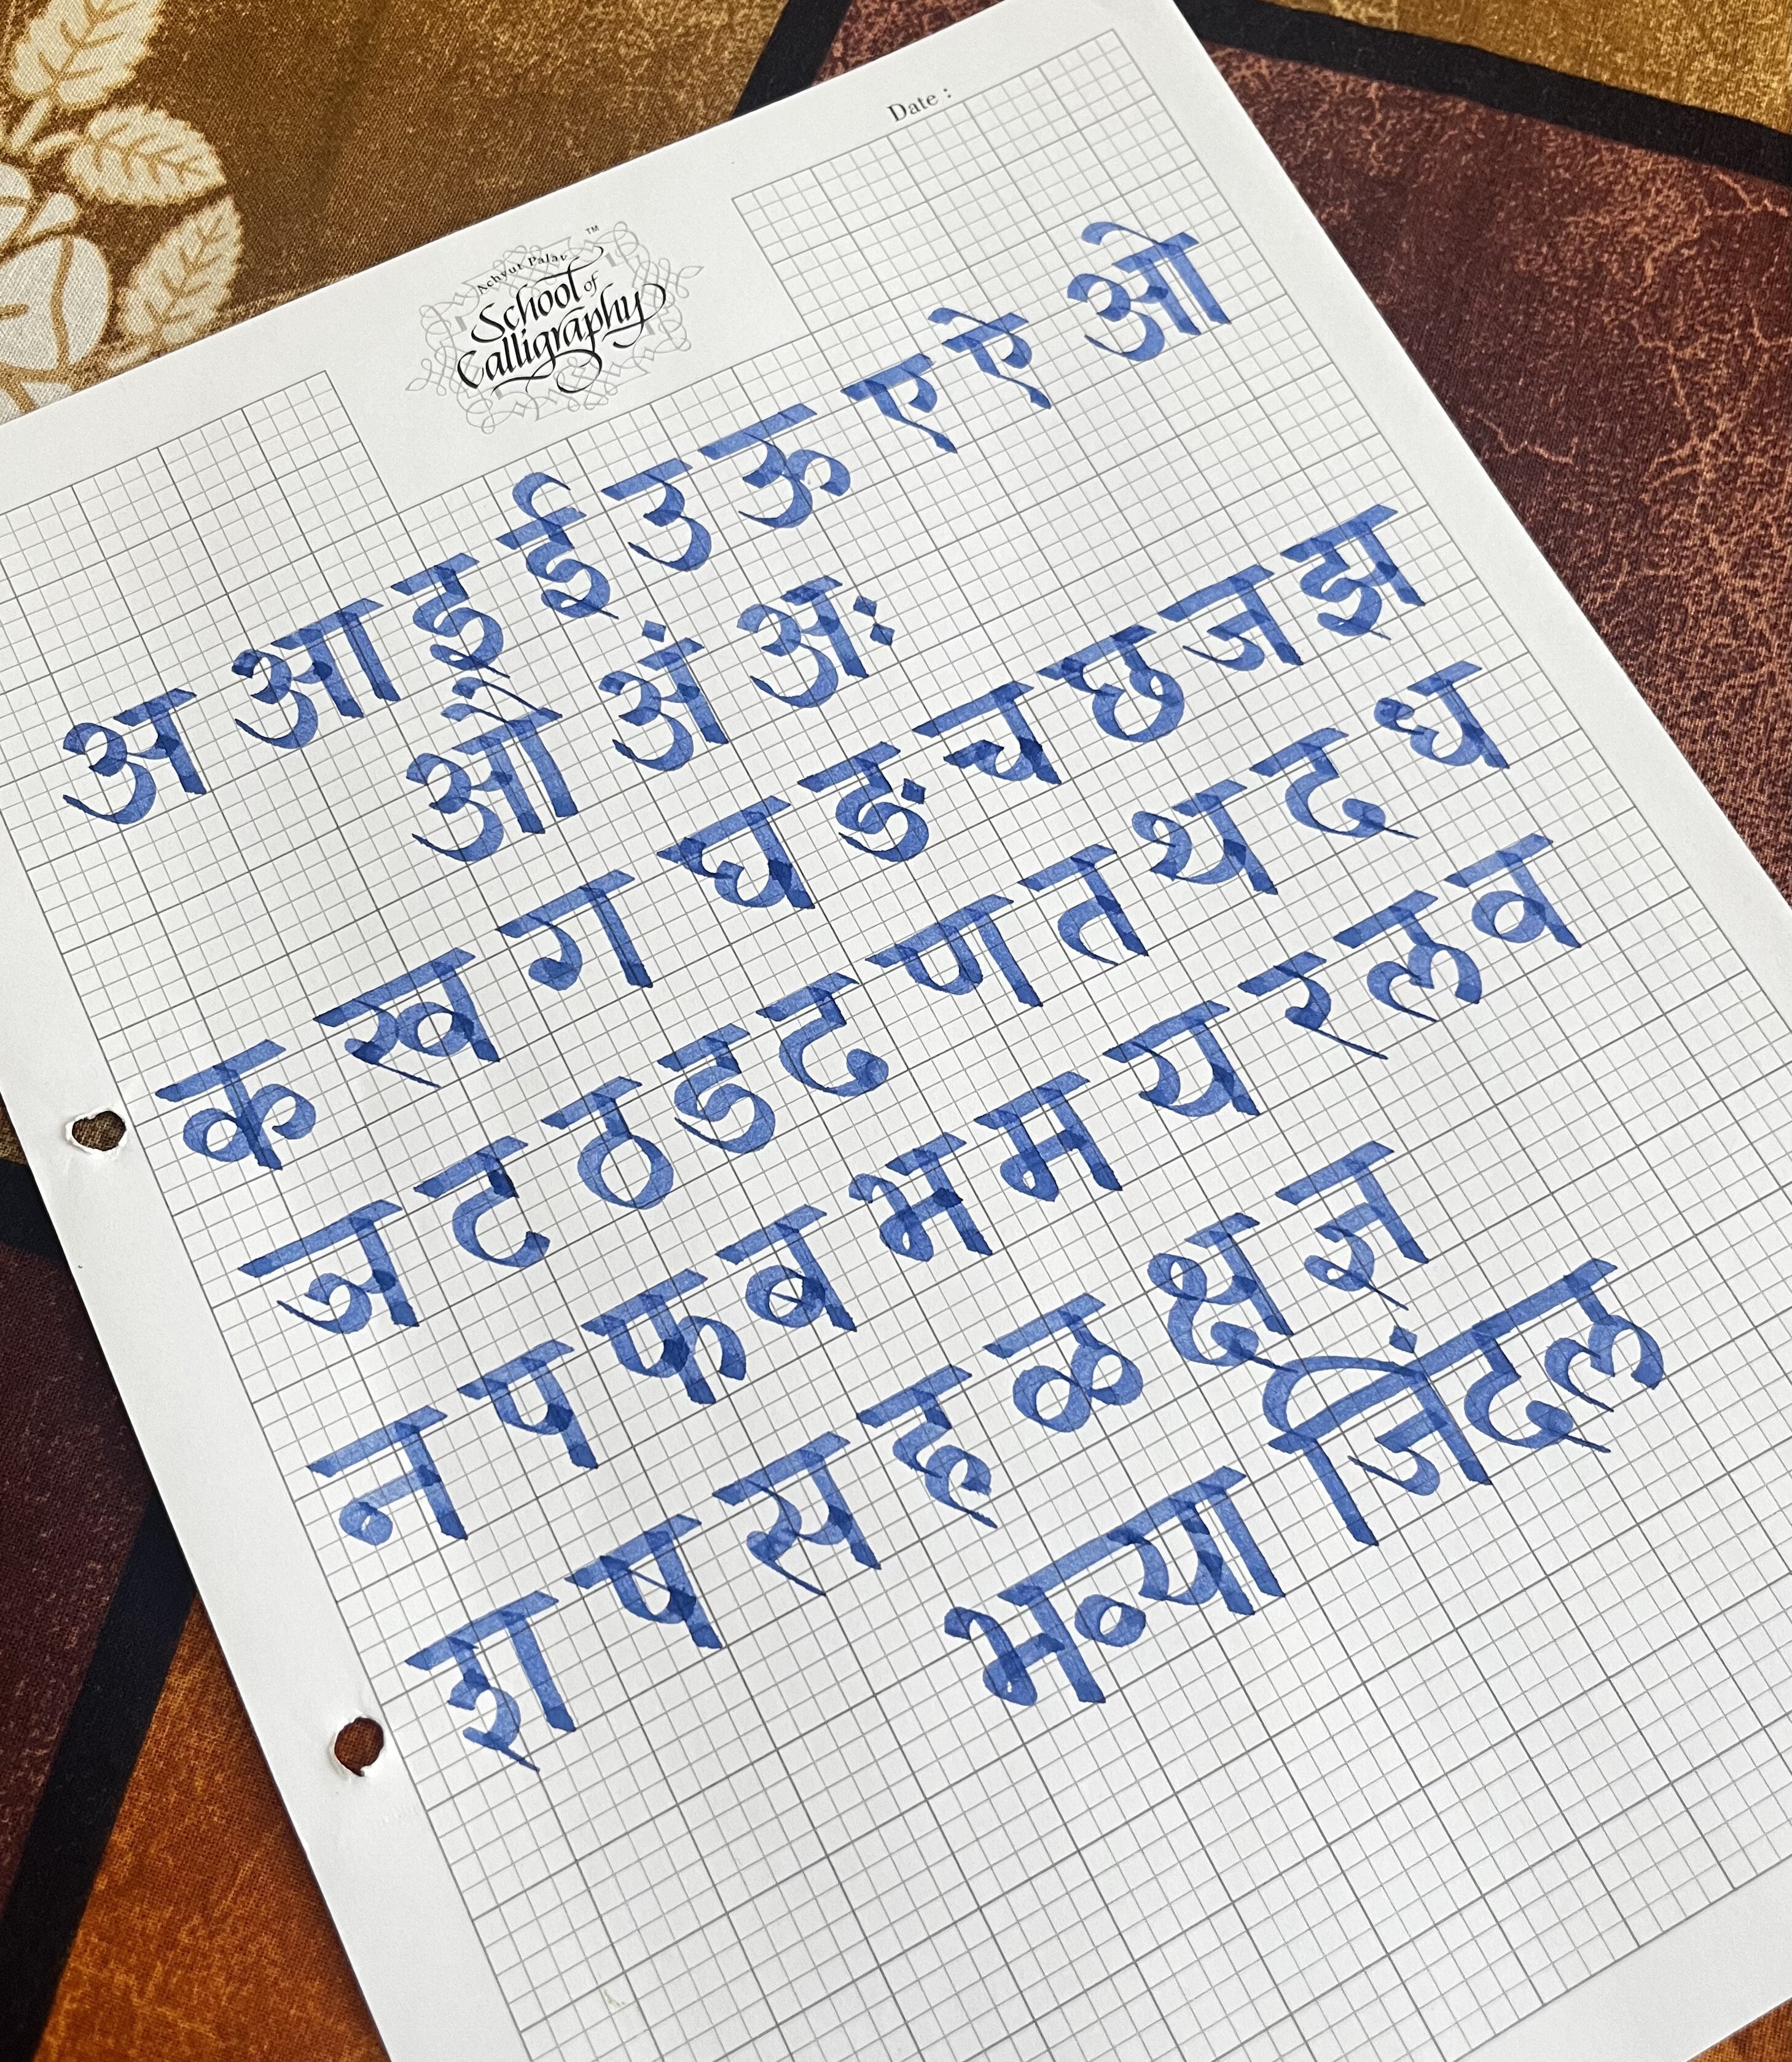 Date :
Achyut Palav
School of
Calligraphy
TM
अ आ इ ई उ ऊ ए ऐ ओ
औ अं अः
क ख ग घ ङ च छ ज झ
ञ ट ठ ड ढ ण त थ द ध
न प फ ब भ म य र ल व
श ष स ह ळ क्ष ज्ञ
भव्या जिंदल